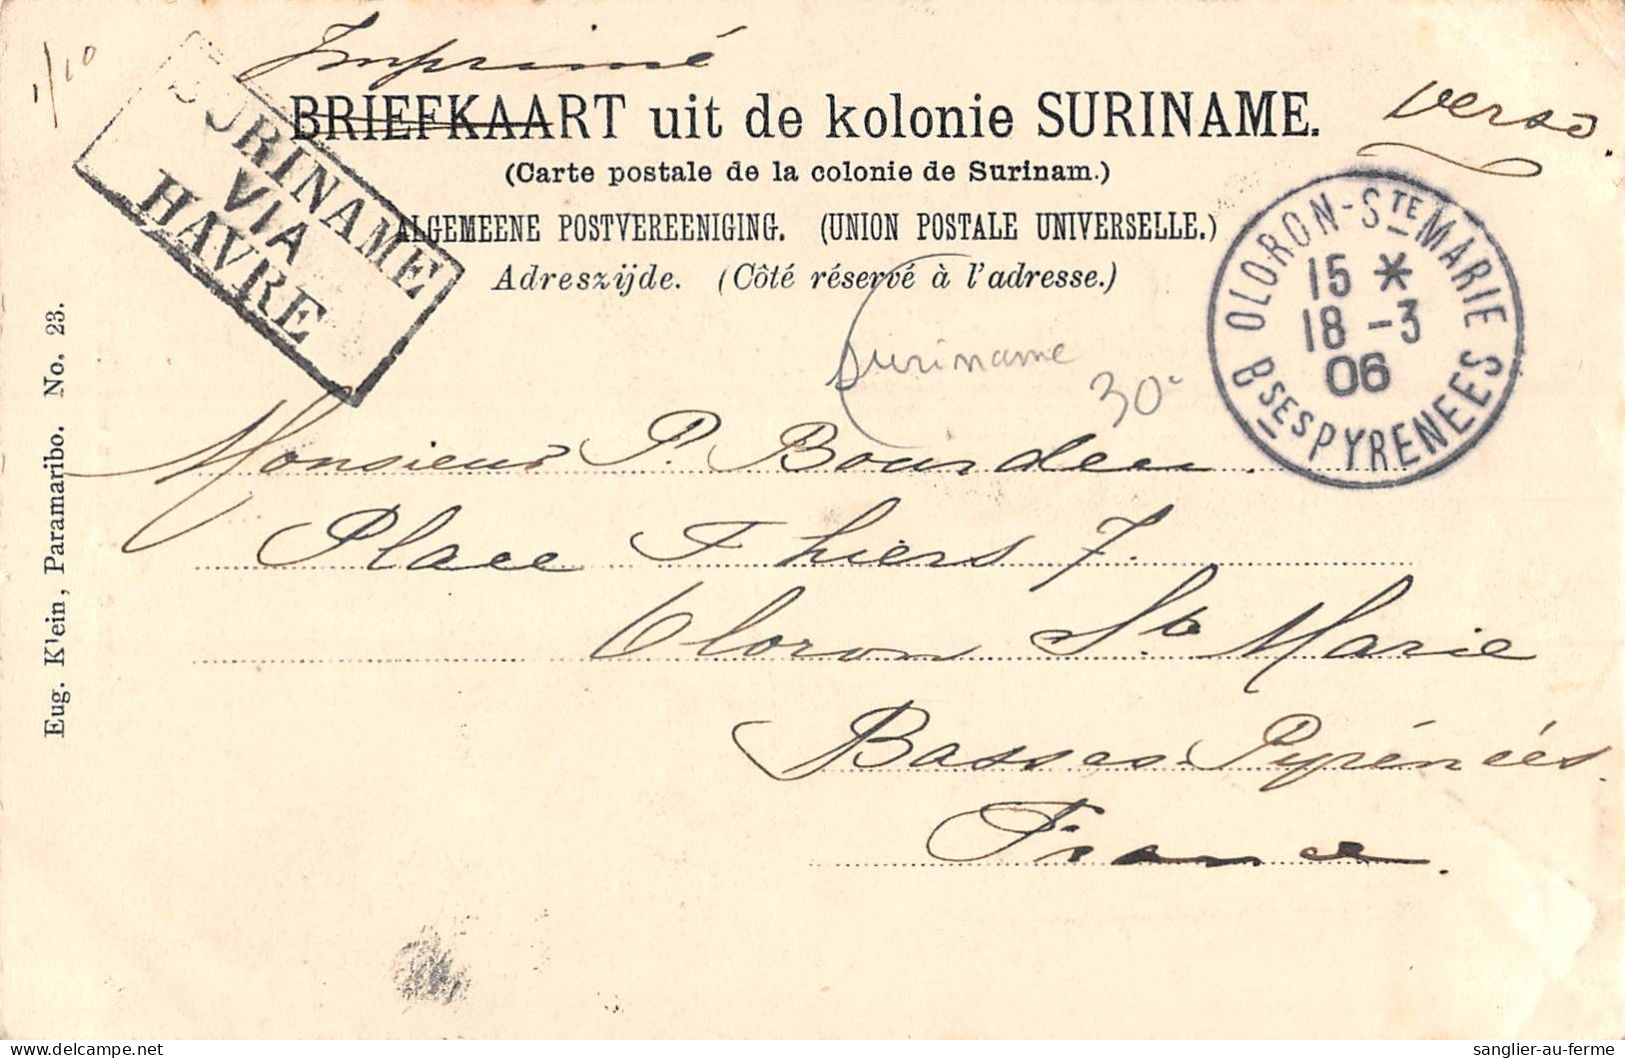 Imprimé
verso
1/10
BRIEFKAART uit de kolonie SURINAME.
(Carte postale de la colonie de Surinam.)
ALGEMEENE POSTVEREENIGING. (UNION POSTALE UNIVERSELLE.)
Adreszijde. (Côté réservé à l'adresse.)
SURINAME
VIA
HAVRE
OLORON-STE MARIE
15 *
18 -3
06
BSES PYRENEES
Suriname
30c
Monsieur P. Bourdeu.
Place Thiers 7.
Oloron Ste Marie
Basses Pyrénées.
France.
Eug. Klein, Paramaribo. No. 23.
sanglier-au-ferme